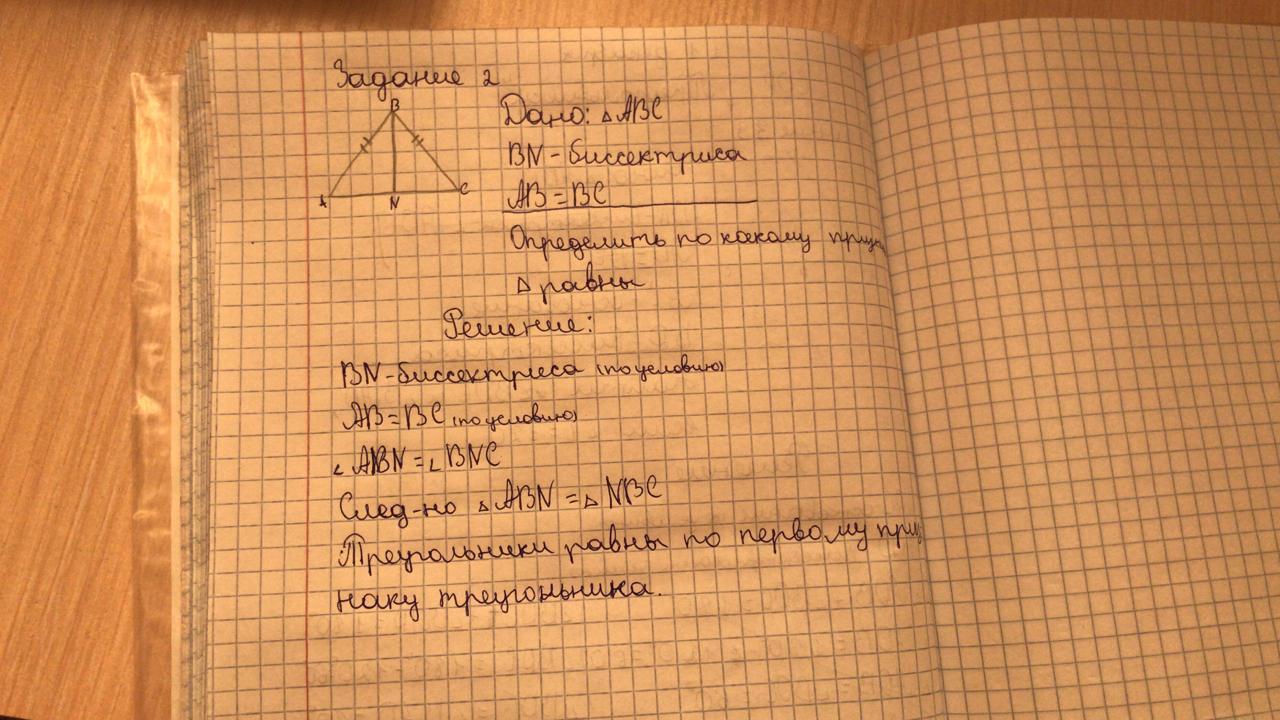 Задание 2
B
A
N
C
Дано: △ABC
BN - биссектриса
AB = BC
Определить по какому призн
△ равны
Решение:
BN - биссектриса (по условию)
AB = BC (по условию)
∠ ABN = ∠ BNC
След-но △ ABN = △ NBC
Треугольники равны по первому приз
наку треугольника.